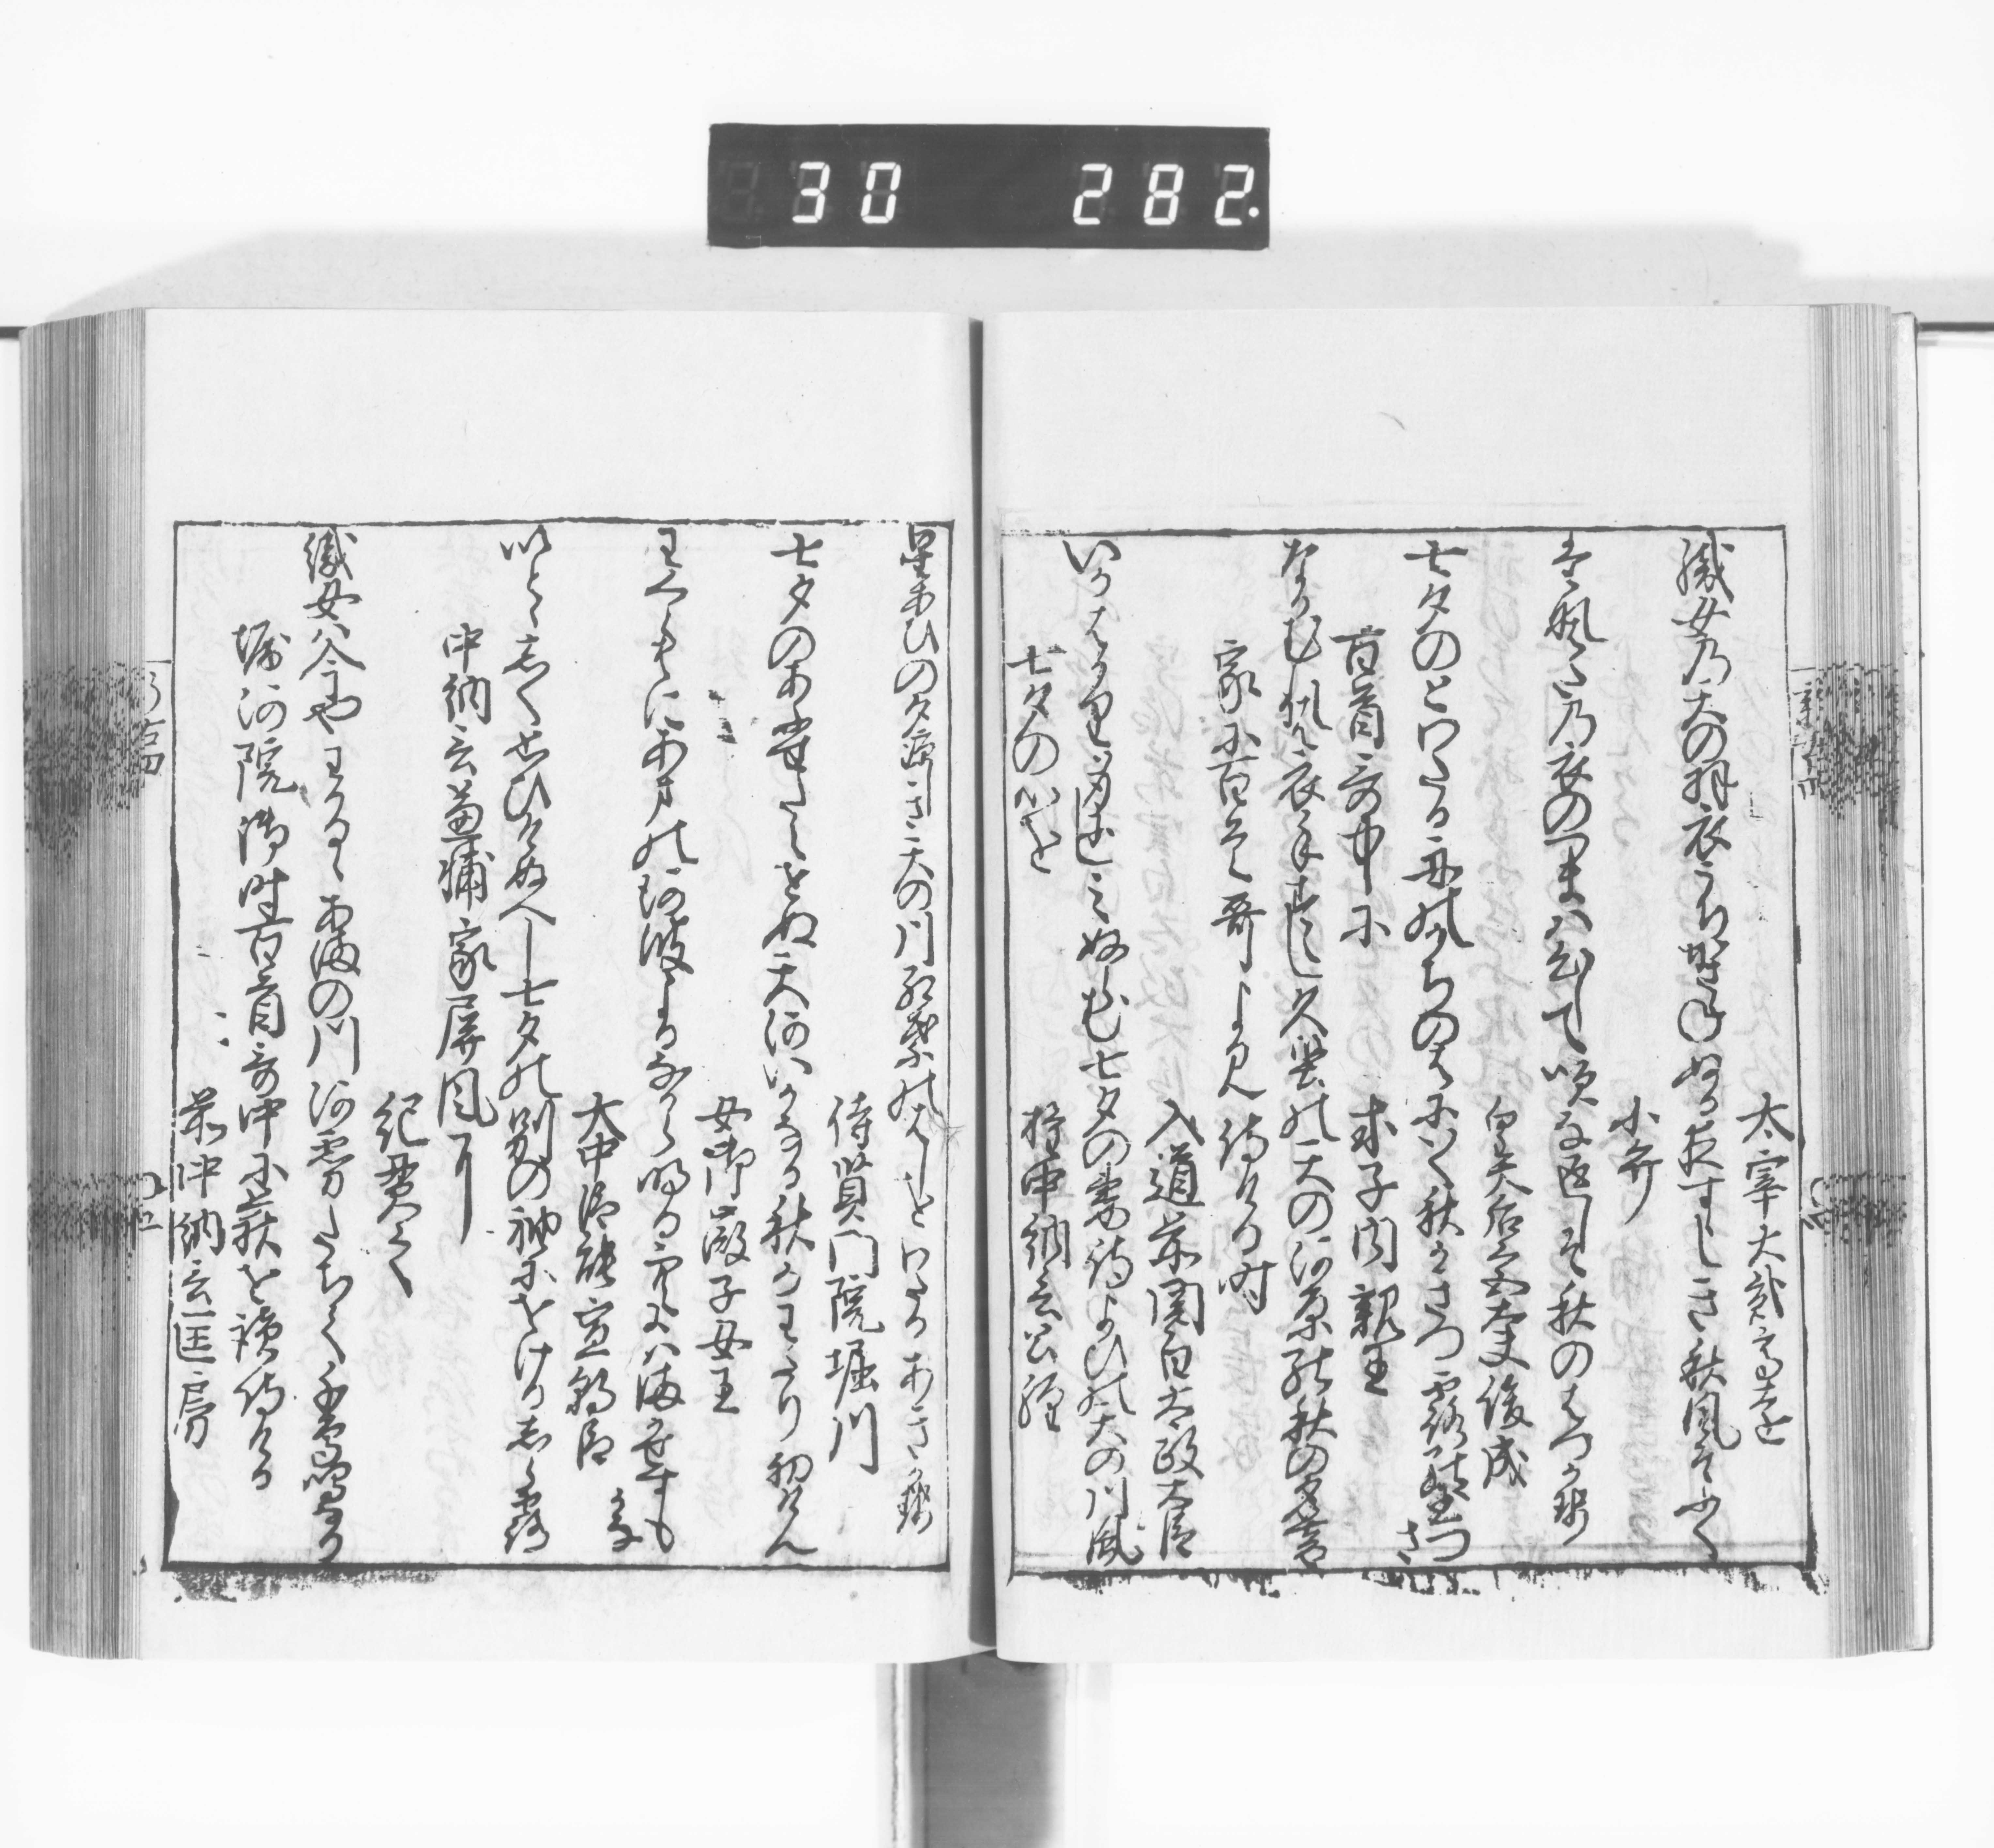 30 282.
太宰大貳高遠
織女乃天の羽衣うち重ねぬる夜すゝしき秋風そ吹く
小弁
たなはた乃衣のつまハ心して吹な返しそ秋のはつかせ
皇太后宮大夫俊成
七夕のとわたる舟のかちのはにいく秋かきつ露の玉つさ
百首哥中に
式子内親王
なかむれハ衣手すゝし久堅の天の河原の秋の夕暮
家に百首哥よみ侍ける時
入道前関白太政大臣
いかはかり身にしみぬらむ七夕の妻待よひの天の川風
七夕の心を
権中納言公経
星あひの夕凉しき天の川紅葉のはしをわたるあきかせ
待賢門院堀川
七夕のあふせたえせぬ天河いかなる秋かわたり初けん
女御徽子女王
わくらはにあまの河波よるなから明る空にハまかせすもかな
大中臣能宣朝臣
いとゝしく思ひけぬへし七夕の別の袖にをけるしら露
中納言兼輔家屏風に
紀貫之
織女ハ今やわかるゝあまの川河霧たちて千鳥鳴なり
堀河院御時百首哥中に萩を読侍ける
前中納言匡房